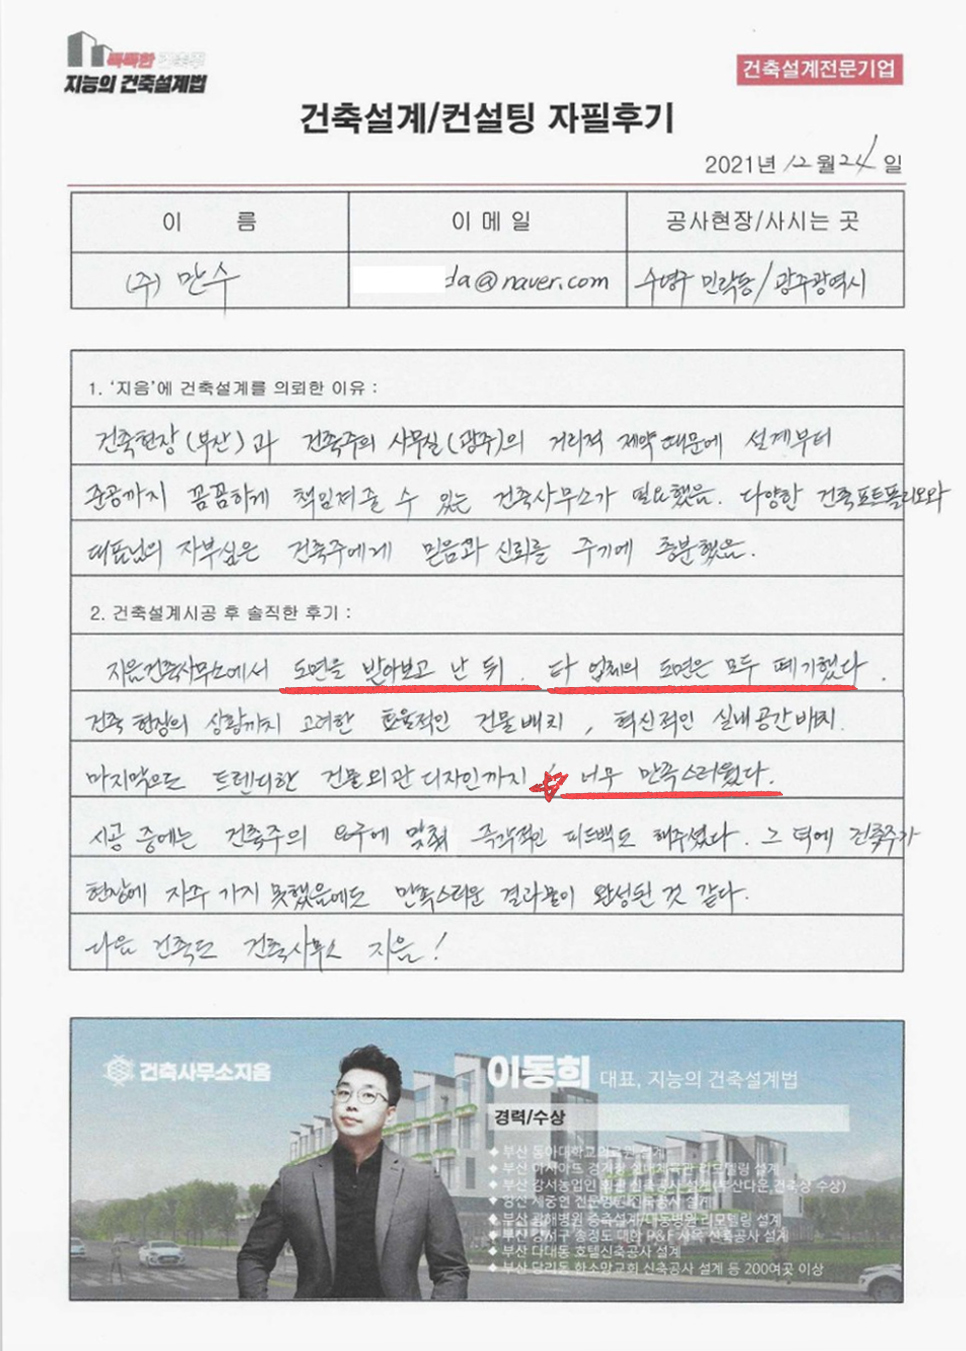 똑똑한 건축주
지능의 건축설계법
건축설계전문기업
건축설계/컨설팅 자필후기
2021년 12월 24일
이 름 이 메 일 공사현장/사시는 곳
(주) 만수 da@naver.com 수영구 민락동/광주광역시
1. '지음'에 건축설계를 의뢰한 이유 :
건축현장(부산)과 건축주의 사무실(광주)의 거리적 제약때문에 설계부터
준공까지 꼼꼼하게 책임져줄 수 있는 건축사무소가 필요했음. 다양한 건축포트폴리오와
대표님의 자부심은 건축주에게 믿음과 신뢰를 주기에 충분했음.
2. 건축설계시공 후 솔직한 후기 :
지음건축사무소에서 도면을 받아보고 난 뒤. 타 업체의 도면은 모두 폐기했다.
건축 현장의 상황까지 고려한 효율적인 건물배치, 혁신적인 실내공간배치.
마지막으로 트렌디한 건물외관디자인까지 너무 만족스러웠다.
시공 중에는 건축주의 요구에 맞춰 즉각적인 피드백도 해주셨다. 그 덕에 건축주가
현장에 자주 가지 못했음에도 만족스러운 결과물이 완성된 것 같다.
다음 건축도 건축사무소 지음!
건축사무소지음
이동희 대표, 지능의 건축설계법
경력/수상
◆ 부산 동아대학교의료원 설계
◆ 부산 아시아드 경기장 실내체육관 리모델링 설계
◆ 부산 강서농업인 회관 신축공사 설계(부산다운 건축상 수상)
신축공사 설계
◆ 부산 증축설계/대동병원 리모델링 설계
◆ 부산 강서구 송정도 사옥 신축공사 설계
◆ 부산 다대동 호텔신축공사 설계
◆ 부산 당리동 한소망교회 신축공사 설계 등 200여곳 이상